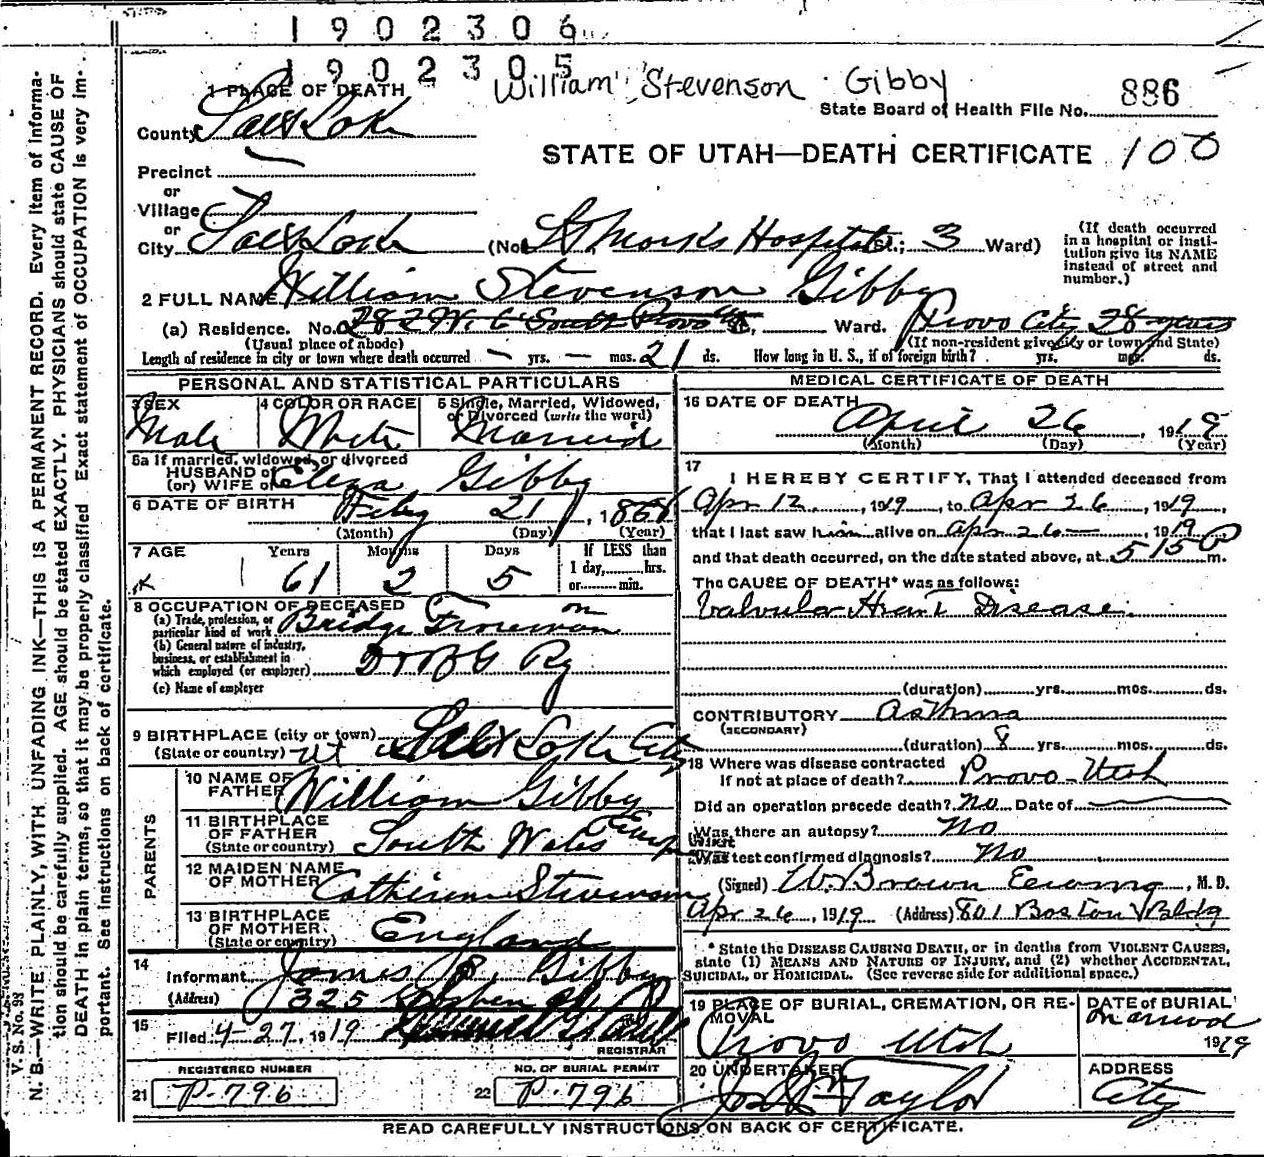 1902306
1902305
William Stevenson Gibby
State Board of Health File No. 886
1 PLACE OF DEATH
County Salt Lake
STATE OF UTAH—DEATH CERTIFICATE 100
Precinct
or
Village
or
City Salt Lake (No. St Marks Hospital St.; 3 Ward)
(If death occurred in a hospital or institution give its NAME instead of street and number.)
2 FULL NAME William Stevenson Gibby
(a) Residence. No. 282 W. 6 South Provo St., Ward. Provo City 28 years
(Usual place of abode) (If non-resident give city or town and State)
Length of residence in city or town where death occurred — yrs. — mos. 21 ds. How long in U. S., if of foreign birth? yrs. mos. ds.
PERSONAL AND STATISTICAL PARTICULARS
3 SEX Male
4 COLOR OR RACE White
5 Single, Married, Widowed, or Divorced (write the word) Married
5a If married, widowed, or divorced
HUSBAND of
(or) WIFE of Eliza Gibby
6 DATE OF BIRTH Feby 21, 1858
(Month) (Day) (Year)
7 AGE Years 61 Months 2 Days 5 If LESS than 1 day, hrs. or min.
8 OCCUPATION OF DECEASED
(a) Trade, profession, or particular kind of work Bridge Foreman on
(b) General nature of industry, business, or establishment in which employed (or employer) D & R G Ry
(c) Name of employer
9 BIRTHPLACE (city or town) Salt Lake City
(State or country) Ut
PARENTS
10 NAME OF FATHER William Gibby
11 BIRTHPLACE OF FATHER (State or country) South Wales
12 MAIDEN NAME OF MOTHER Catherine Stevenson
13 BIRTHPLACE OF MOTHER (State or country) England
14 Informant James Gibby
(Address) 325
15 Filed 4-27, 1919
REGISTRAR
REGISTERED NUMBER
21 P-796
NO. OF BURIAL PERMIT
22 P-796
MEDICAL CERTIFICATE OF DEATH
16 DATE OF DEATH April 26, 1919
(Month) (Day) (Year)
17 I HEREBY CERTIFY, That I attended deceased from
Apr 12, 1919, to Apr 26, 1919,
that I last saw him alive on Apr 26—, 1919
and that death occurred, on the date stated above, at 5 15 P m.
The CAUSE OF DEATH* was as follows:
Valvular Heart Disease.
(duration) yrs. mos. ds.
CONTRIBUTORY Asthma
(SECONDARY)
(duration) 8 yrs. mos. ds.
18 Where was disease contracted
If not at place of death? Provo-Utah
Did an operation precede death? No Date of
Was there an autopsy? No
What test confirmed diagnosis? No
(Signed) W. Brown Ewing, M. D.
Apr 26, 1919 (Address) 801 Boston Bldg
* State the DISEASE CAUSING DEATH, or in deaths from VIOLENT CAUSES, state (1) MEANS AND NATURE OF INJURY, and (2) whether ACCIDENTAL, SUICIDAL, or HOMICIDAL. (See reverse side for additional space.)
19 PLACE OF BURIAL, CREMATION, OR REMOVAL Provo Utah
DATE OF BURIAL 1919
20 UNDERTAKER Jos Wm Taylor
ADDRESS City
READ CAREFULLY INSTRUCTIONS ON BACK OF CERTIFICATE.
V. S. No. 98
N. B.—WRITE PLAINLY, WITH UNFADING INK—THIS IS A PERMANENT RECORD. Every item of information should be carefully supplied. AGE should be stated EXACTLY. PHYSICIANS should state CAUSE OF DEATH in plain terms, so that it may be properly classified. Exact statement of OCCUPATION is very important. See instructions on back of certificate.